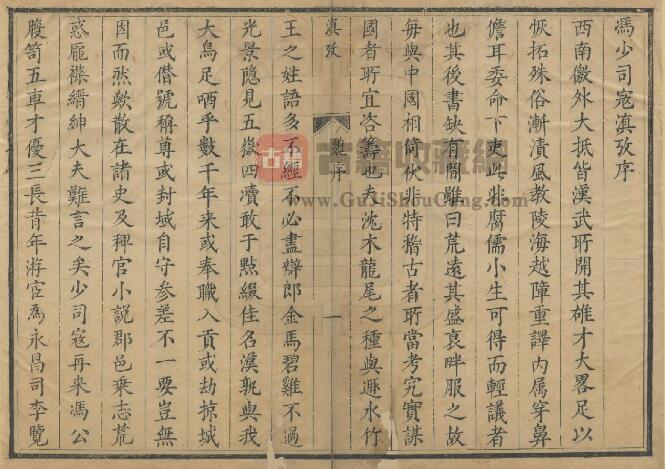 馮少司寇滇攷序
西南徼外大抵皆漢武所開其雄才大畧足以
恢拓殊俗漸漬風教陵海越障重譯内属穿鼻
儋耳委命下吏此非腐儒小生可得而輕議者
也其後書缺有間雖曰荒遠其盛衰畔服之故
每與中國相倚伏非特稽古者所當考究實謀
國者所宜咨籌也夫沈木龍尾之種與遯水竹
滇攷
序
一
王之姓語多不經不必盡辯郎金馬碧雞不過
光景隱見五嶽四瀆敢于點綴佳名漢孰與我
大鳥足哂乎數千年来或奉職入貢或劫掠城
邑或僣號稱尊或封域自守参差不一要豈無
因而然歟散在諸史及稗官小說郡邑乗志荒
惑厖襍縉紳大夫難言之矣少司寇再来馮公
腹笥五車才優三長昔年游宦為永昌司李覽
古籍收藏網
www.GuJiShouCang.com